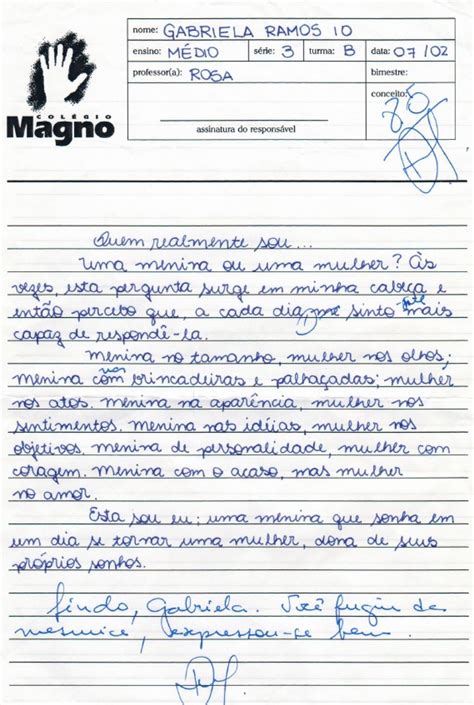 nome: GABRIELA RAMOS 10
ensino: MÉDIO série: 3 turma: B data: 07/02
professor(a): ROSA bimestre:
conceito:
8,5
assinatura do responsável
COLÉGIO
Magno
Quem realmente sou...
Uma menina ou uma mulher? Às
vezes, esta pergunta surge em minha cabeça e
então percebo que, a cada dia, me sinto mais
capaz de respondê-la.
Menina no tamanho, mulher nos olhos;
menina com nas brincadeiras e palhaçadas; mulher
nos atos. Menina na aparência, mulher nos
sentimentos. Menina nas idéias, mulher nos
objetivos. Menina de personalidade, mulher com
coragem. Menina com o acaso, mas mulher
no amor.
Esta sou eu; uma menina que sonha em
um dia se tornar uma mulher, dona de seus
próprios sonhos.
Lindo, Gabriela. Você fugiu da
mesmice, expressou-se bem.